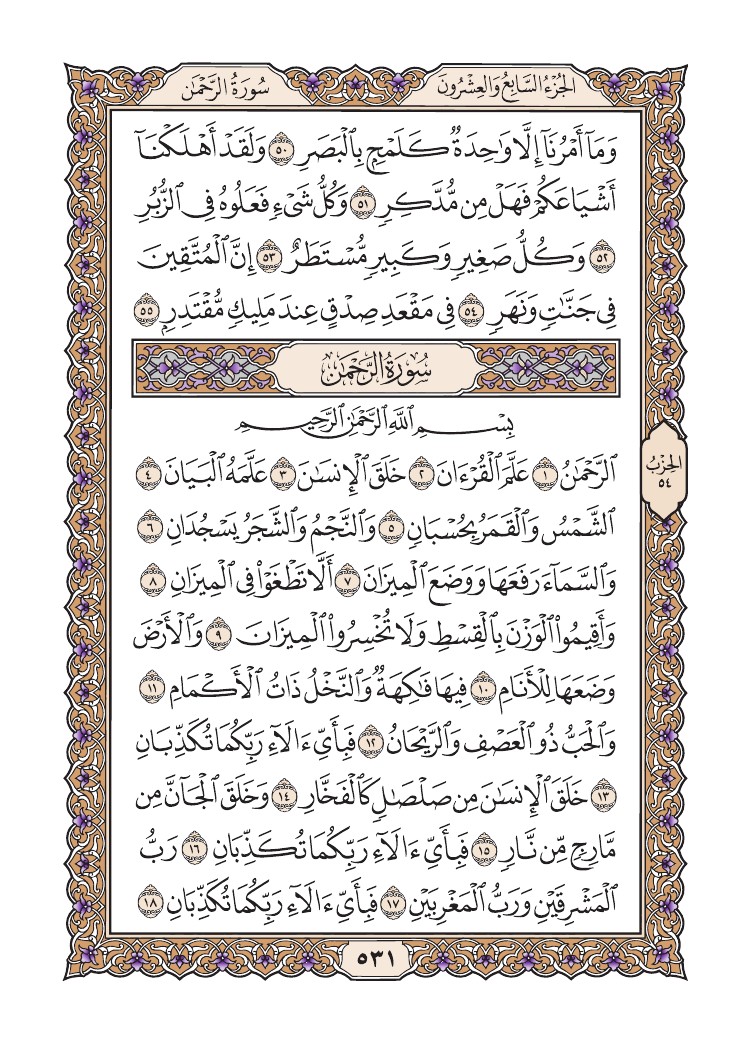 الجزء السابع والعشرون
سورة الرحمن
وَمَآ أَمْرُنَآ إِلَّا وَٰحِدَةٌ كَلَمْحِۭ بِٱلْبَصَرِ ٥٠ وَلَقَدْ أَهْلَكْنَآ
أَشْيَاعَكُمْ فَهَلْ مِن مُّدَّكِرٍ ٥١ وَكُلُّ شَىْءٍ فَعَلُوهُ فِى ٱلزُّبُرِ
٥٢ وَكُلُّ صَغِيرٍ وَكَبِيرٍ مُّسْتَطَرٌ ٥٣ إِنَّ ٱلْمُتَّقِينَ
فِى جَنَّٰتٍ وَنَهَرٍ ٥٤ فِى مَقْعَدِ صِدْقٍ عِندَ مَلِيكٍ مُّقْتَدِرٍۭ ٥٥
سُورَةُ الرَّحْمَٰن
بِسْمِ ٱللَّهِ ٱلرَّحْمَٰنِ ٱلرَّحِيمِ
ٱلرَّحْمَٰنُ ١ عَلَّمَ ٱلْقُرْءَانَ ٢ خَلَقَ ٱلْإِنسَٰنَ ٣ عَلَّمَهُ ٱلْبَيَانَ ٤
ٱلشَّمْسُ وَٱلْقَمَرُ بِحُسْبَانٍ ٥ وَٱلنَّجْمُ وَٱلشَّجَرُ يَسْجُدَانِ ٦
وَٱلسَّمَآءَ رَفَعَهَا وَوَضَعَ ٱلْمِيزَانَ ٧ أَلَّا تَطْغَوْا۟ فِى ٱلْمِيزَانِ ٨
وَأَقِيمُوا۟ ٱلْوَزْنَ بِٱلْقِسْطِ وَلَا تُخْسِرُوا۟ ٱلْمِيزَانَ ٩ وَٱلْأَرْضَ
وَضَعَهَا لِلْأَنَامِ ١٠ فِيهَا فَٰكِهَةٌ وَٱلنَّخْلُ ذَاتُ ٱلْأَكْمَامِ ١١
وَٱلْحَبُّ ذُو ٱلْعَصْفِ وَٱلرَّيْحَانُ ١٢ فَبِأَىِّ ءَالَآءِ رَبِّكُمَا تُكَذِّبَانِ
١٣ خَلَقَ ٱلْإِنسَٰنَ مِن صَلْصَٰلٍ كَٱلْفَخَّارِ ١٤ وَخَلَقَ ٱلْجَآنَّ مِن
مَّارِجٍ مِّن نَّارٍ ١٥ فَبِأَىِّ ءَالَآءِ رَبِّكُمَا تُكَذِّبَانِ ١٦ رَبُّ
ٱلْمَشْرِقَيْنِ وَرَبُّ ٱلْمَغْرِبَيْنِ ١٧ فَبِأَىِّ ءَالَآءِ رَبِّكُمَا تُكَذِّبَانِ ١٨
الحزب
٥٤
٥٣١